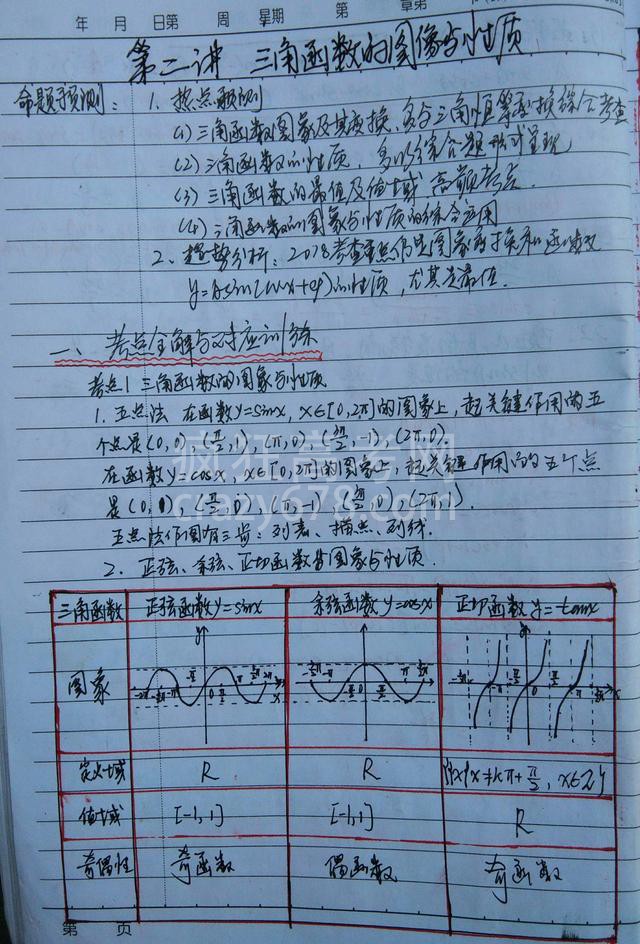 年 月 日第 周 星期 第 章第
第二讲 三角函数的图像与性质
命题预测: 1. 热点预测
(1) 三角函数图象及其变换、多与三角恒等变换综合考查
(2) 三角函数的性质, 多以综合题形式呈现
(3) 三角函数的最值及值域 高频考点.
(4) 三角函数的图象与性质的综合应用
2. 趋势分析: 2018考查重点仍是图象变换和函数
y=Asin(ωx+φ)的性质, 尤其是最值.
一、考点全解与对应训练
考点1 三角函数的图象与性质
1. 五点法 在函数y=sinx, x∈[0,2π]的图象上, 起关键作用的五
个点是(0,0), (π/2,1) (π,0), (3π/2,-1), (2π,0).
在函数y=cosx, x∈[0,2π]的图象上, 起关键作用的的五个点
是(0,1), (π/2,0), (π,-1), (3π/2,0), (2π,1).
五点法作图有三步: 列表、描点、列线.
2. 正弦、余弦、正切函数的图象与性质.
疯狂高考网
crazy678.com
三角函数 正弦函数y=sinx 余弦函数y=cosx 正切函数y=tanx
图象
定义域 R R {x|x≠kπ+π/2, x∈Z}
值域 [-1,1] [-1,1] R
奇偶性 奇函数 偶函数 奇函数
第 页